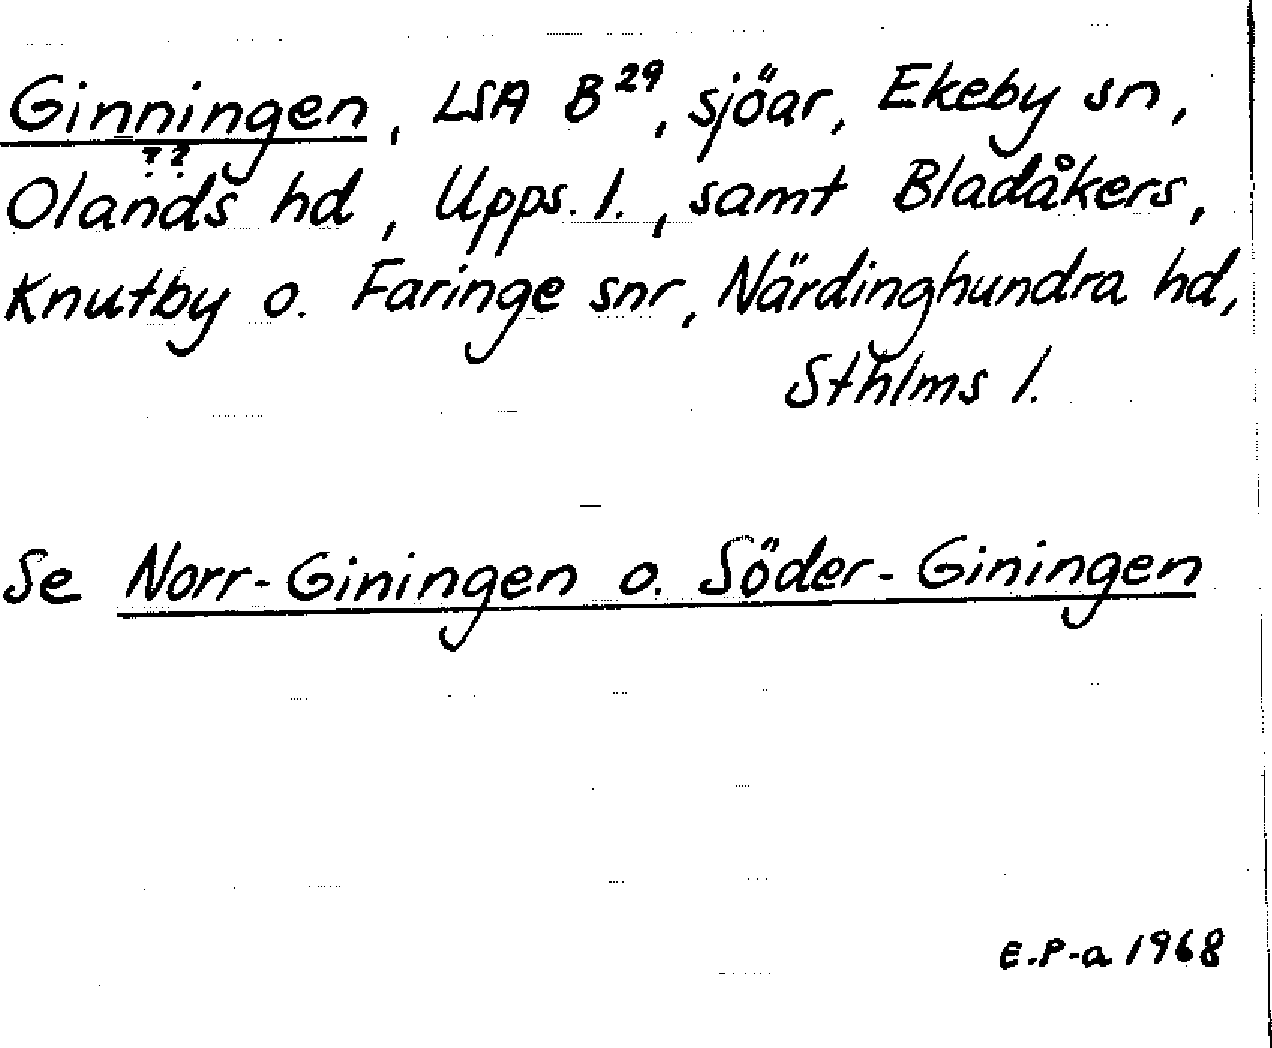 Ginningen, LSA B²⁹, sjöar, Ekeby sn,
??
Olands hd, Upps. l., samt Bladåkers,
Knutby o. Faringe snr, Närdinghundra hd,
Sthlms l.
Se Norr-Giningen o. Söder-Giningen
E.P-a 1968